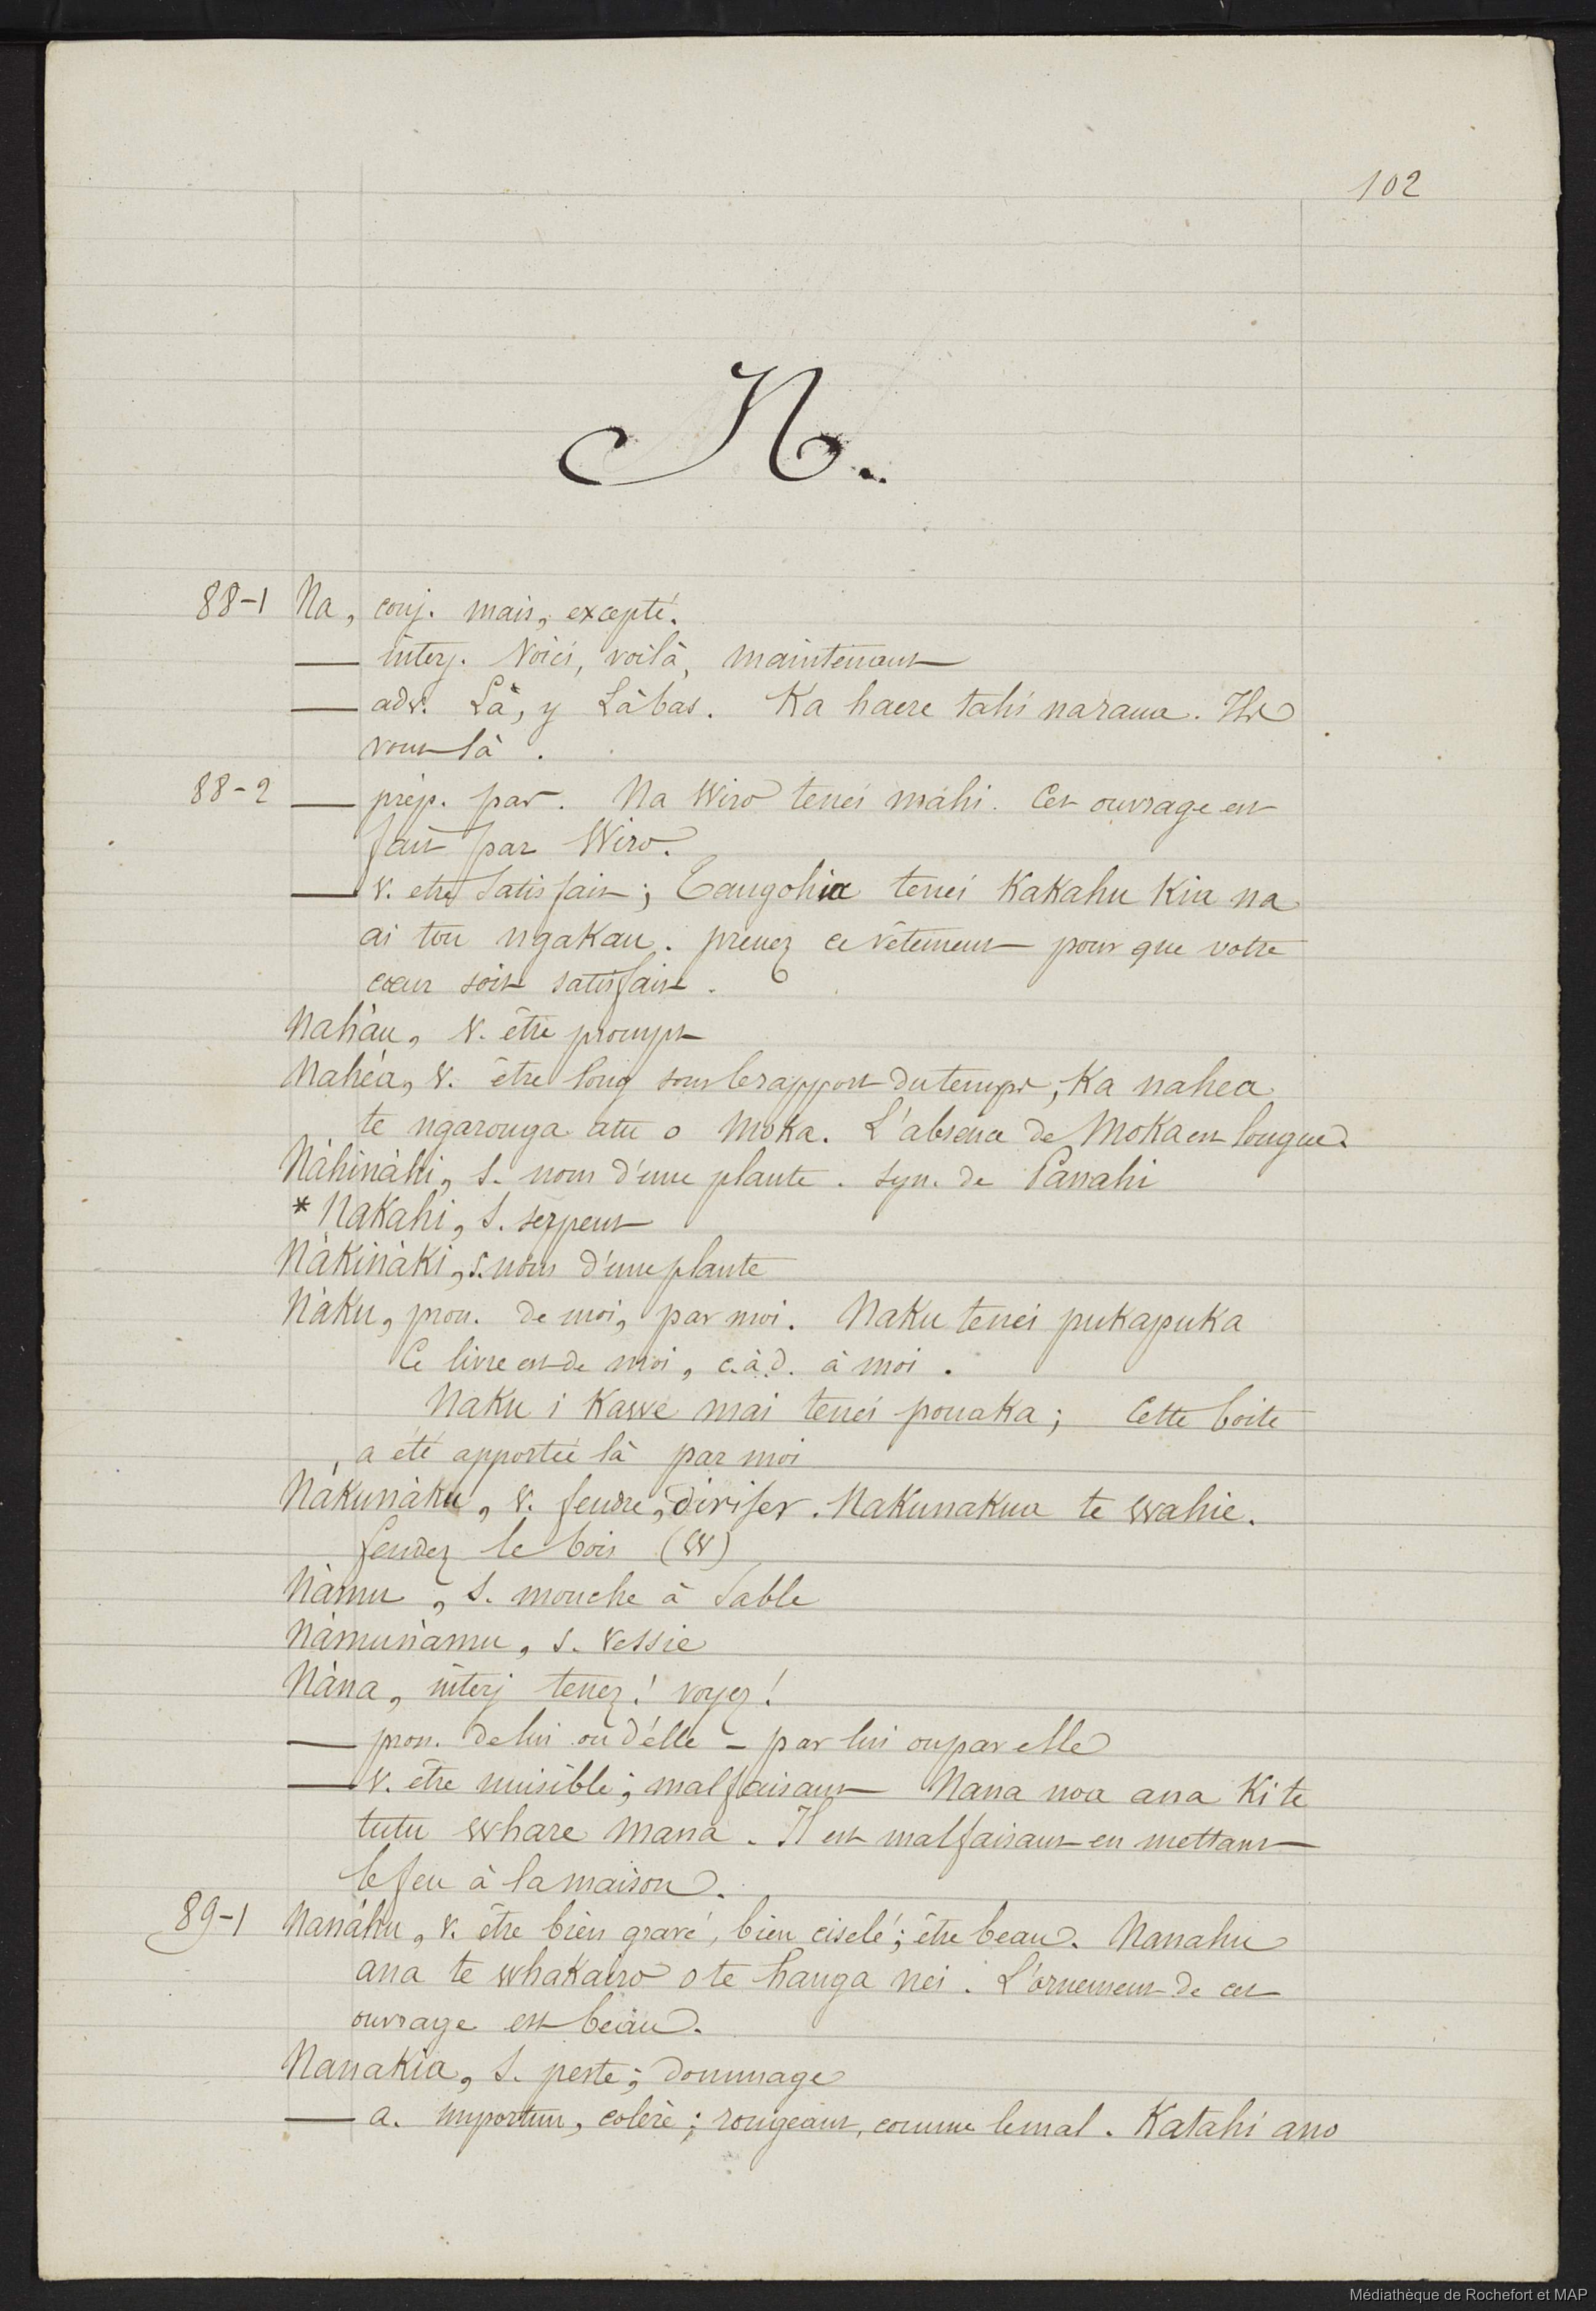 102
N.
88-1 Na, conj. mais, excepté.
— interj. Voici, voilà, maintenant
— adv. Là, y Là bas. Ka haere tahi naraua. Ils
vont là.
88-2 — prép. par. Na Wiro tenei màhi. Cet ouvrage est
fait par Wiro.
— v. etre satisfait; Tangohia tenei Kakahu Kia na
ai tou ngaKau. prenez ce vêtement pour que votre
cœur soit satisfait.
Nahàu, v. être prompt
Nahéa, v. être long sous le rapport du temps, Ka nahea
te ngaronga atu o Moka. L'absence de Moka est longue.
Nàhinàhi, s. nom d'une plante. syn. de Panahi
* Nakahi, s. serpent
NàKinàKi, s. nom d'une plante
NàKu, pron. de moi, par moi. NaKu tenei puKapuKa
Ce livre est de moi, c.à.d. à moi.
NaKu i Kawe mai tenei pouaKa; Cette boite
a été apportée là par moi
NàKunàKu, v. fendre, diviser. NaKunaKua te wahie.
fendez le bois (W)
Nàmu, s. mouche à sable
Nàmunàmu, s. vessie
Nàna, interj tenez! voyez!
— pron. de lui ou d'elle - par lui ou par elle
— v. être nuisible; malfaisant Nana noa ana Ki te
tutu whare mana. Il est malfaisant en mettant
le feu à la maison.
89-1 Nanáhu, v. être bien gravé, bien ciselé; être beau. Nanahu
ana te whaKairo o te hanga nei. L'ornement de cet
ouvrage est beau.
NanaKia, s. peste; dommage
— a. importun, colère; rongeant, comme le mal. Katahi ano
Médiathèque de Rochefort et MAP